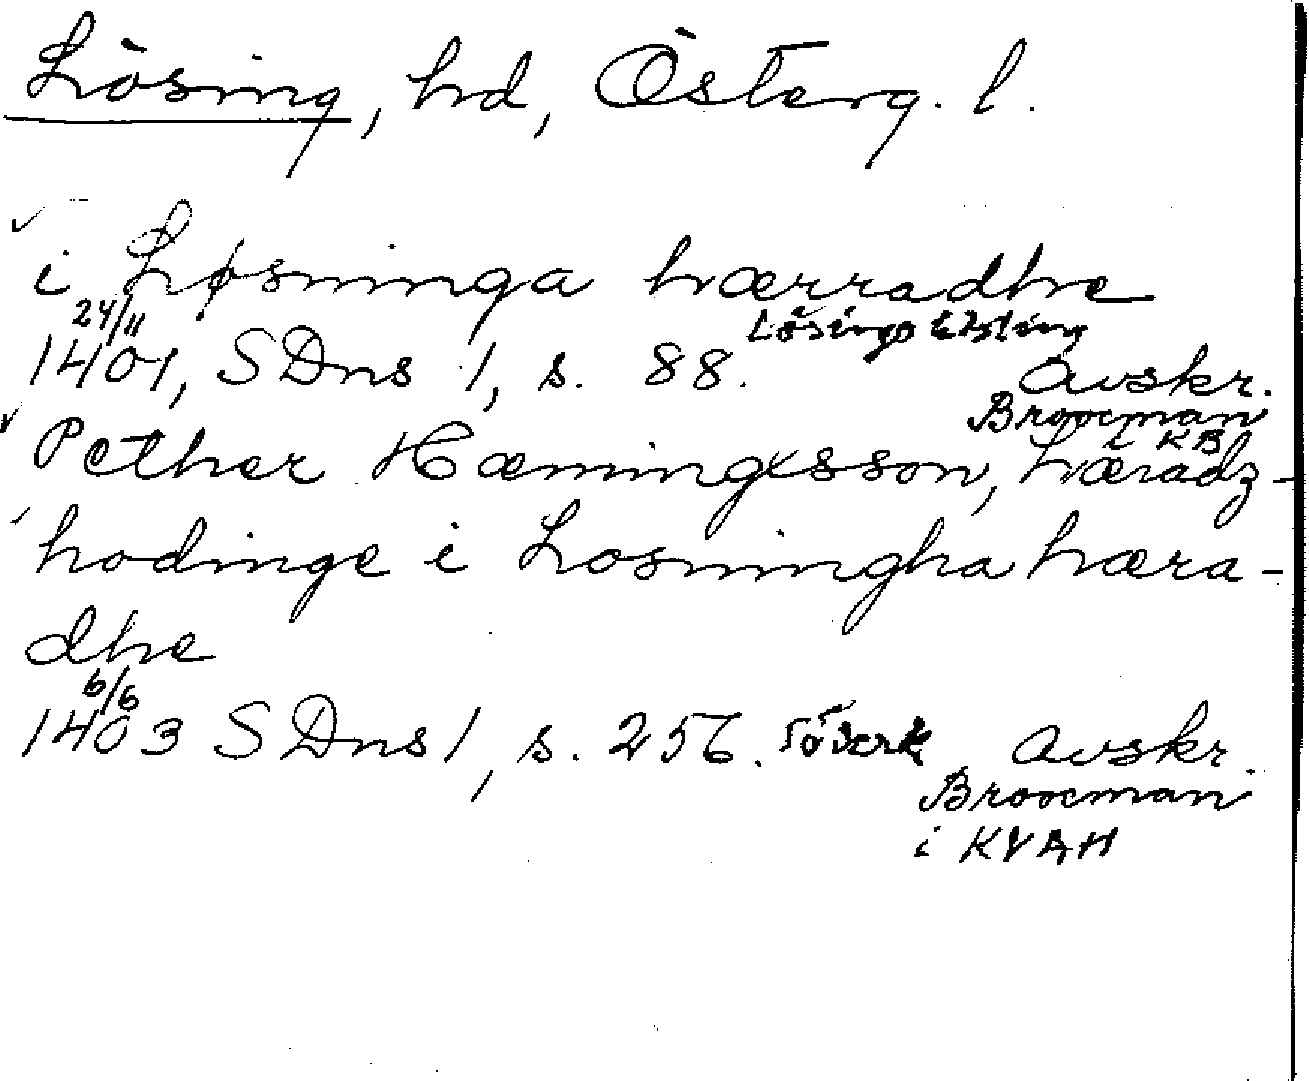 Lösing, hd, Österg. l.
i Løsninga hærradhe
24/11
1401, SDns 1, s. 88. Lösings avskr.
Broocman
i KB
Pether Hæmingxsson, hæradz-
hodinge i Losningha hæra-
dhe
6/6
1403 SDns 1, s. 256. avskr.
Broocman
i KVAH